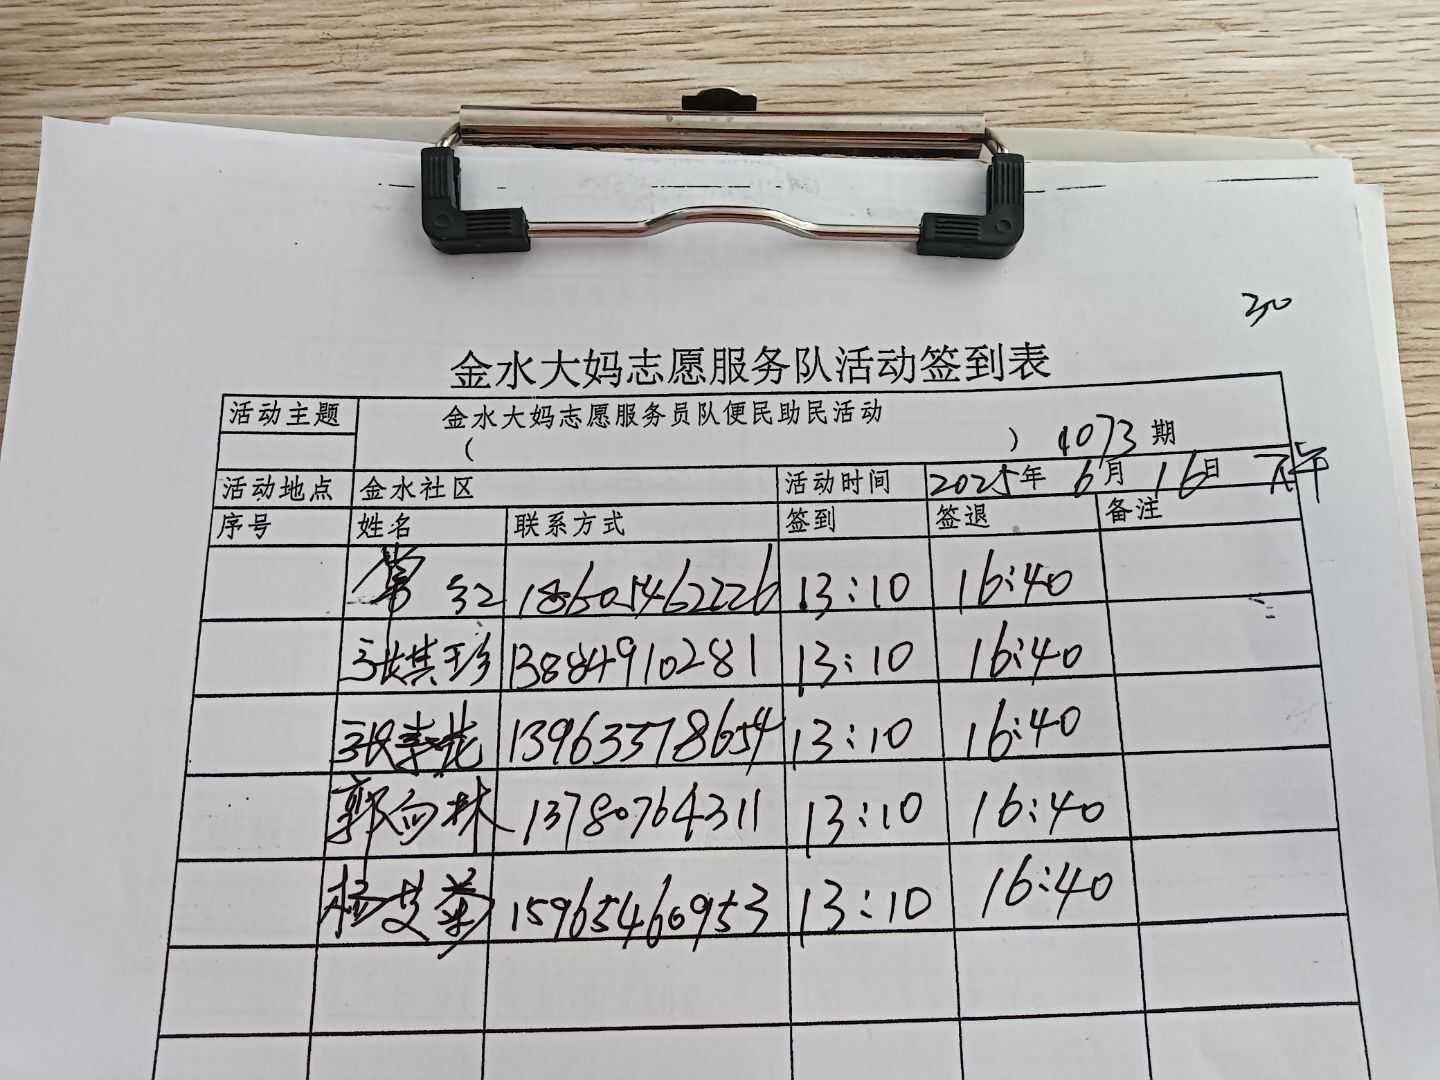 30
金水大妈志愿服务队活动签到表
活动主题 金水大妈志愿服务员队便民助民活动
( ) 1073期
活动地点 金水社区 活动时间 2025年 6月 16日 下午
序号 姓名 联系方式 签到 签退 备注
红 18605462226 13:10 16:40
张其珍 13884910281 13:10 16:40
张春花 13963378654 13:10 16:40
郭向林 13780764311 13:10 16:40
杨艾萍 15965460953 13:10 16:40